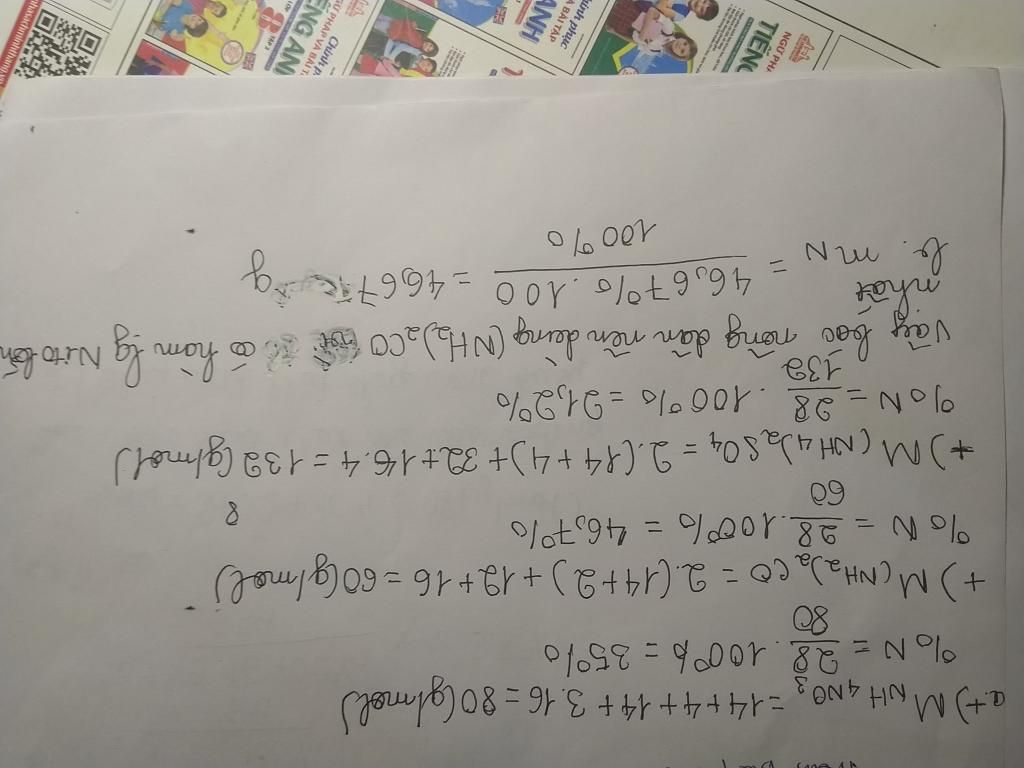 a. +) M NH4NO3 = 14+4+14+3.16 = 80 (g/mol)
%N = 28/80 . 100% = 35%
+) M (NH2)2CO = 2.(14+2)+12+16 = 60 (g/mol)
%N = 28/60 . 100% = 46,7%
8
+) M (NH4)2SO4 = 2.(14+4)+32+16.4 = 132 (g/mol)
%N = 28/132 . 100% = 21,2%
Vậy bác nông dân nên dùng (NH2)2CO có hàm lg Nitơ lớn
nhất
b. mN = 46,67% . 100 / 100% = 46,67 g
TIẾNG ANH
NGỮ PHÁP VÀ BÀI TẬP
ANH
À BÀI TẬP
TIẾNG
NGỮ PHÁP